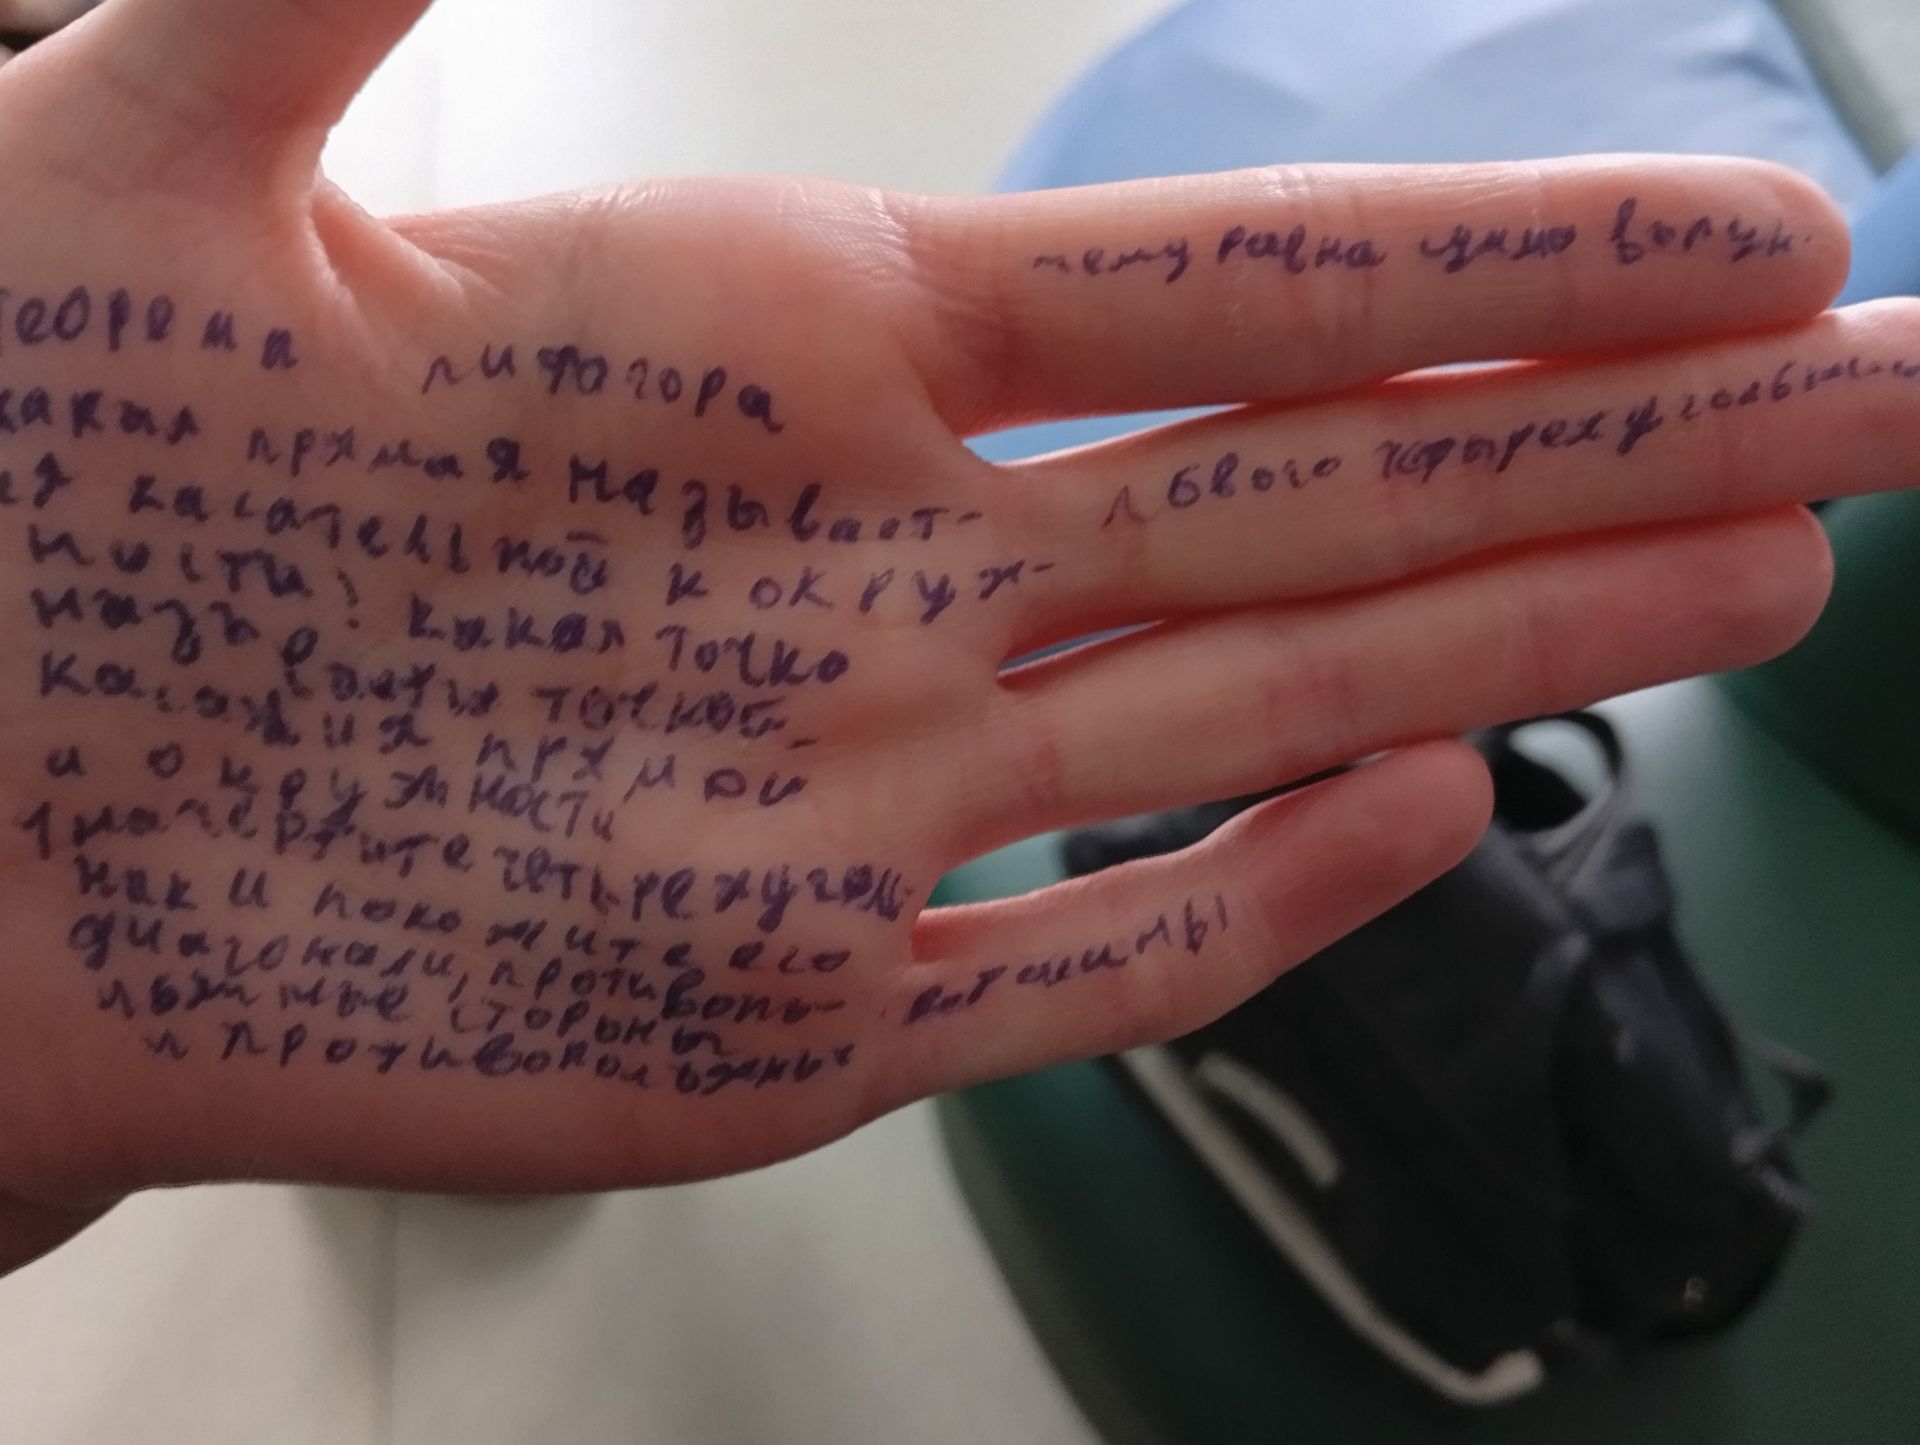 чему равна сумма выпук-
теорема пифагора
лбвого четырехугольника
какая прямая называет-
ся касательной к окруж-
ности? какая точка
называется точкой
касания прямой
и окружности
1 начертите четырехуголь-
ник и покожите его
диагонали, противопо-
ложные стороны
и противоположные
вершины